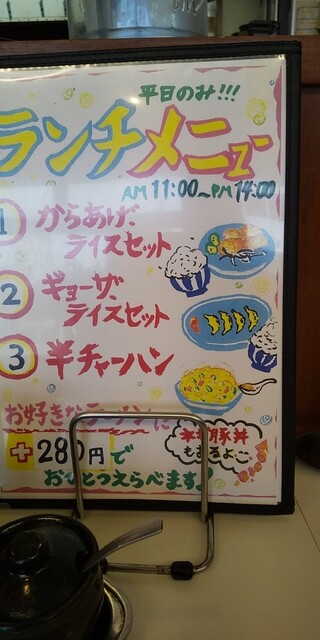 平日のみ!!!
ランチメニュー
AM 11:00〜PM 14:00
1 からあげ
ライスセット
2 ギョーザ
ライスセット
3 半チャーハン
お好きなラーメンに
+280円で
おひとつえらべます。
豚丼
もあるよ